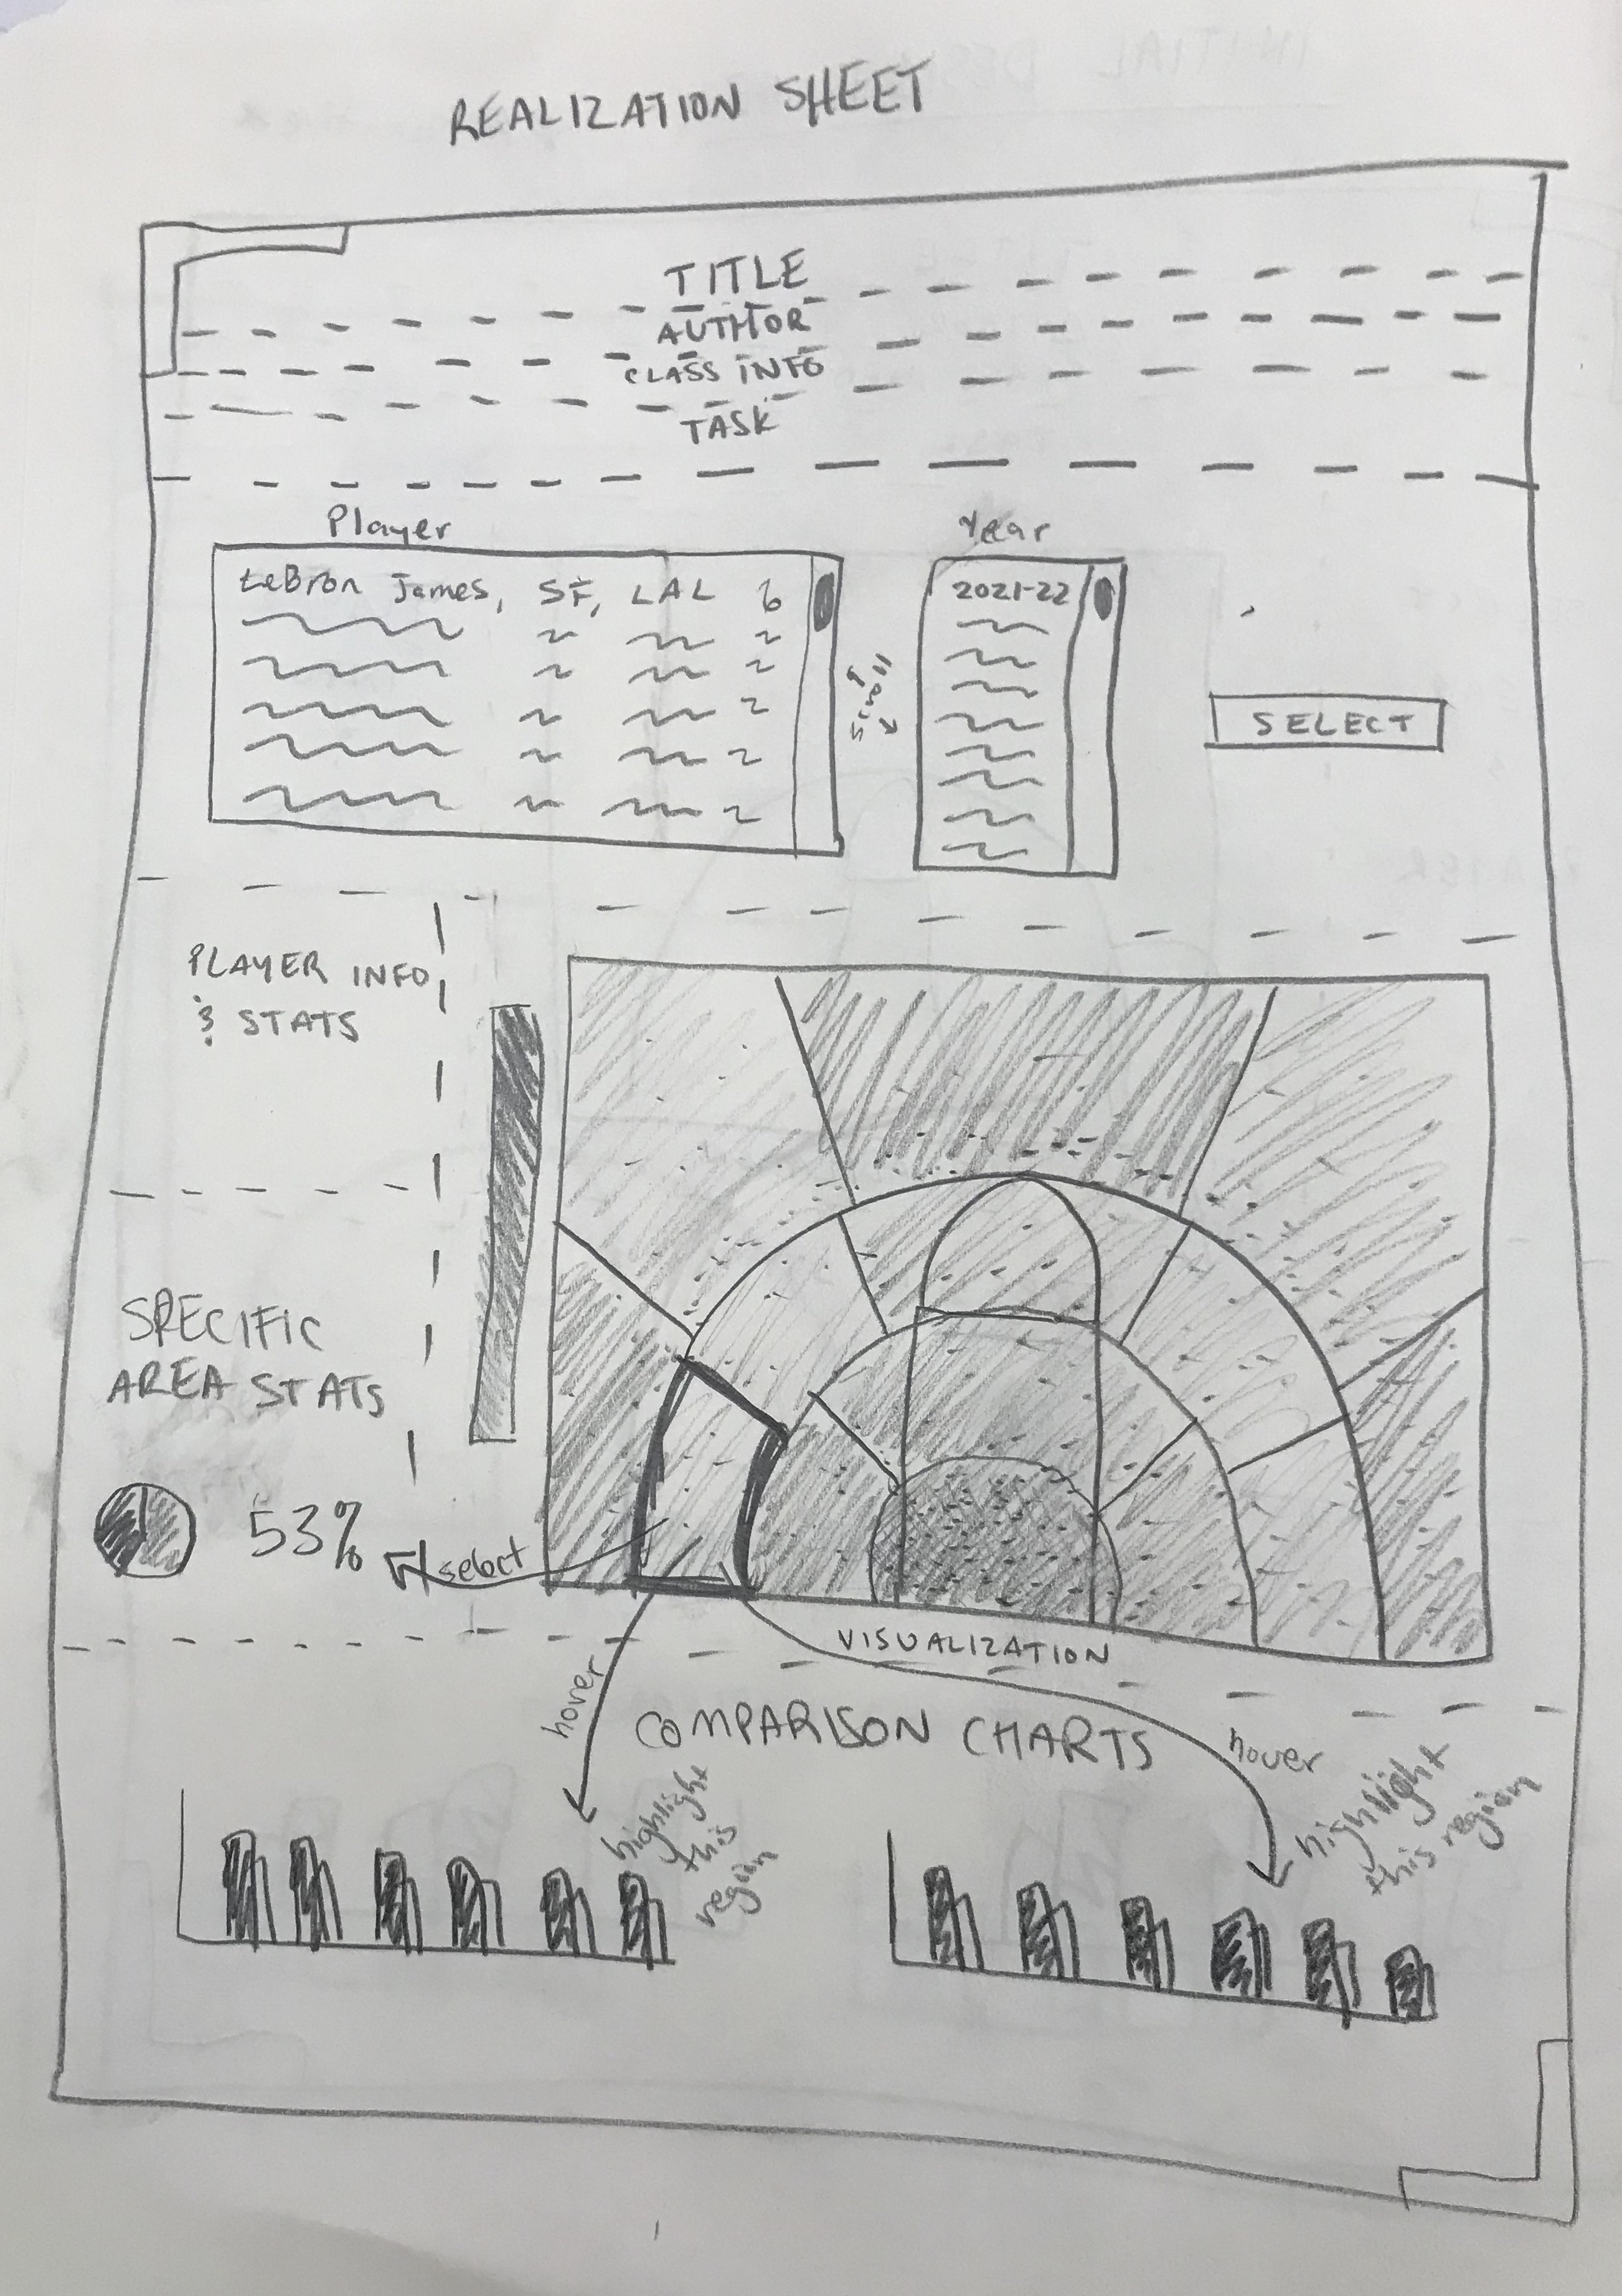 REALIZATION SHEET
TITLE
AUTHOR
CLASS INFO
TASK
Player
Year
LeBron James, SF, LAL 6
2021-22
scroll
SELECT
PLAYER INFO
& STATS
SPECIFIC
AREA STATS
53%
select
VISUALIZATION
hover
COMPARISON CHARTS
hover
highlight
this
region
highlight
this region